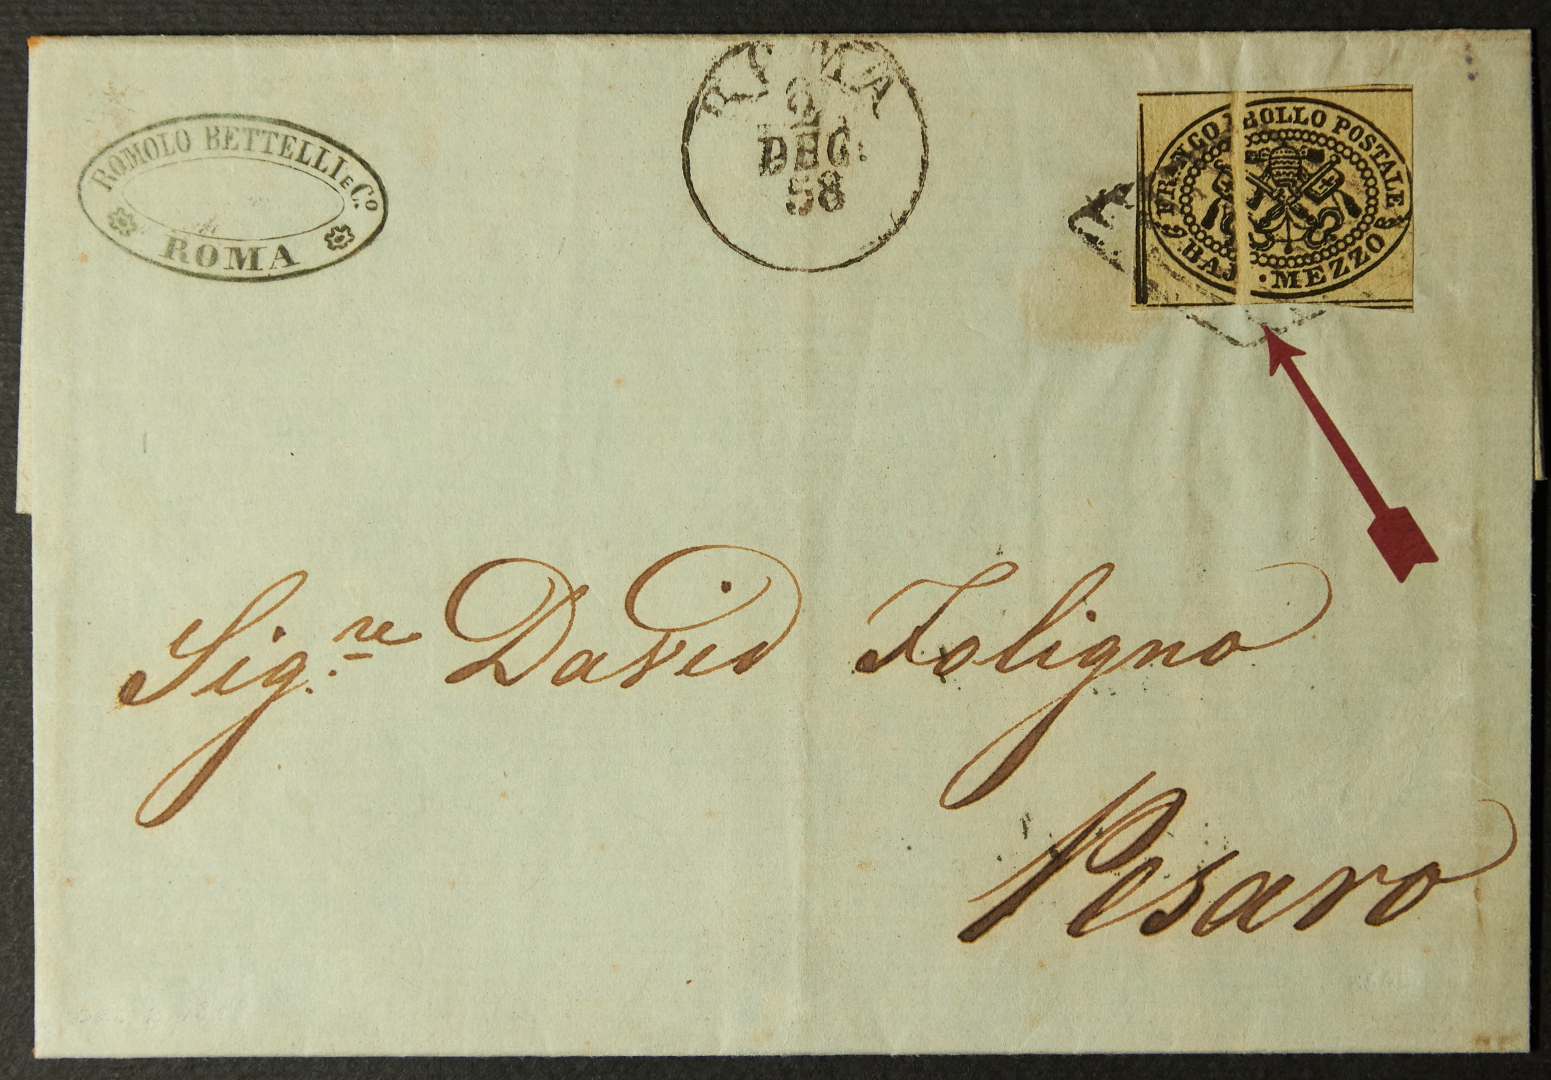 ROMOLO BETTELLI E Cº
ROMA
ROMA
2
DEC.
58
FRANCO BOLLO POSTALE
BAJ · MEZZO
Sig.re David Foligno
Pesaro